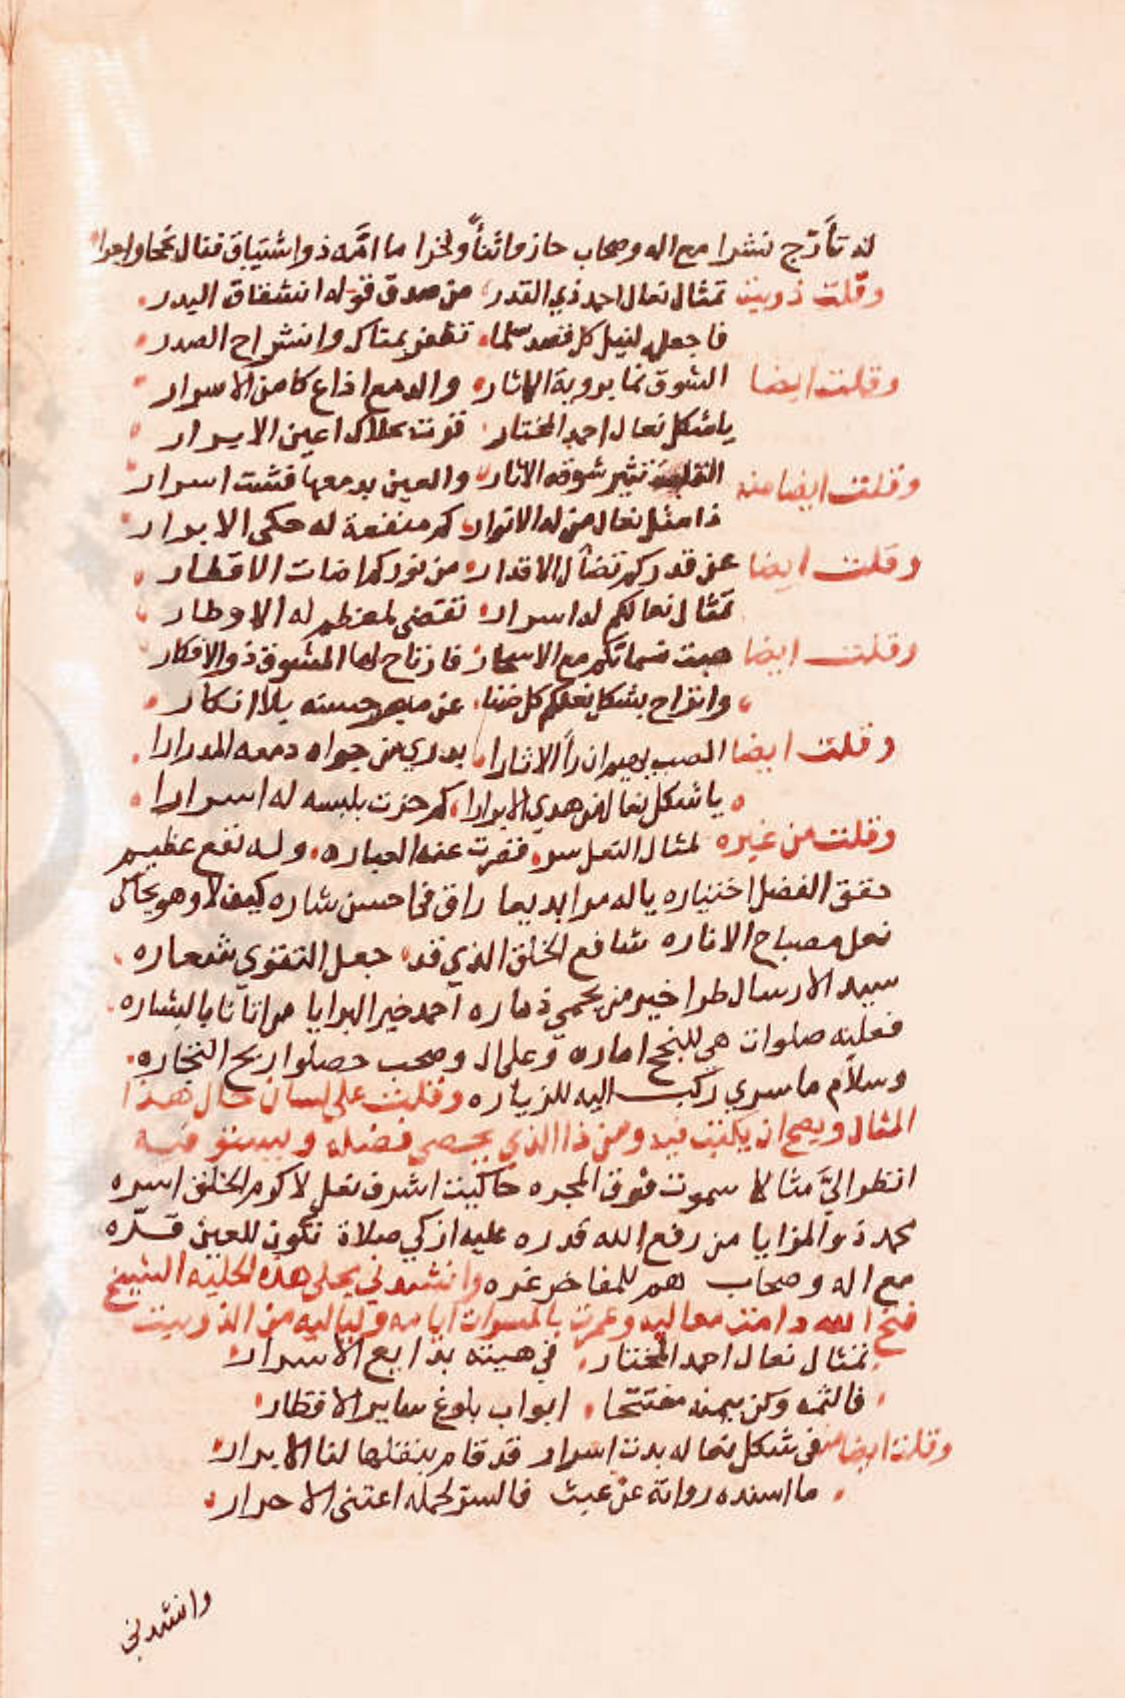 له تأرّج نشرا مع اله وصحاب حازوا ثنأً وفخرا ما امّه ذو اشتياق فنال نجحا واجرا
وقلت ذوبيت تمثال نعال احمد ذي القدر من صدق قوله انشقاق البدر
فاجعله لنيل كل قصد سلما تظفر بمناك وانشراح الصدر
وقلت ايضا الشوق نما بروية الاثار والدمع اذاع كامن الاسرار
ياشكل نعال احمد المختار قرت بحلاك اعين الابرار
وقلت ايضا منه القلب تثير شوقه الاثار والعين بدمعها فشت اسرار
ذا مثل نعال من له الانوار كم منفعة له حكى الابرار
وقلت ايضا عن قدركم تضأل الاقدار من نوركم اضات الاقطار
تمثال نعالكم له اسرار تقتضى لمعظم له الاوطار
وقلت ايضا هبت نسماتكم مع الاسحار فارتاح لها المشوق ذو الافكار
وانزاح بشكل نعلكم كل ضنا عن مبصر حسنه بلا انكار
وقلت ايضا الصب بهيم ان رأ الاثارا يدري من جواه دمعه المدرارا
ياشكل نعال من هدي الابرارا كم حزت بلبسه له اسرارا
وقلت من غيره لمثال النعل سر قصرت عنه العباره وله نفع عظيم
حقق الفضل اختياره ياله مرا بديما راق في احسن شاره كيف لا وهو يحاكى
نعل مصباح الاناره شافع الخلق الذي قد جعل التقوي شعاره
سيد الارسال طرا خير من يحمي ذماره احمد خير البرايا من اتانا بالبشاره
فعليه صلوات هي للنجح اماره وعلى ال وصحب حصلوا ربح التجاره
وسلام ما سري ركب اليه للزياره وقلت على لسان حال هذا
المثال ويصح ان يكتب فيه ومن ذا الذي يحصي فضله ويستوفيه
انظر اليّ مثالا سموت فوق المجره حاكيت اشرف نعل لاكرم الخلق اسره
محمد ذو المزايا من رفع الله قدره عليه ازكي صلاة تكون للعين قرّه
مع اله وصحاب هم للمفاخر غره وانشدني يحلى هذه الحليه الشيخ
فتح الله دامت معاليه وعمرت بالمسرات ايامه ولياليه من الذوبيت
تمثال نعال احمد المختار في هيئته بدايع الاسرار
فالثمه وكن بيمنه مفتتحا ابواب بلوغ ساير الاقطار
وقلت ايضا من في شكل نعاله بدت اسرار قد قام بنقلها لنا الابرار
ما اسنده رواته عن عبث فالستر لحمله اعتنى الاحرار
وانشدني